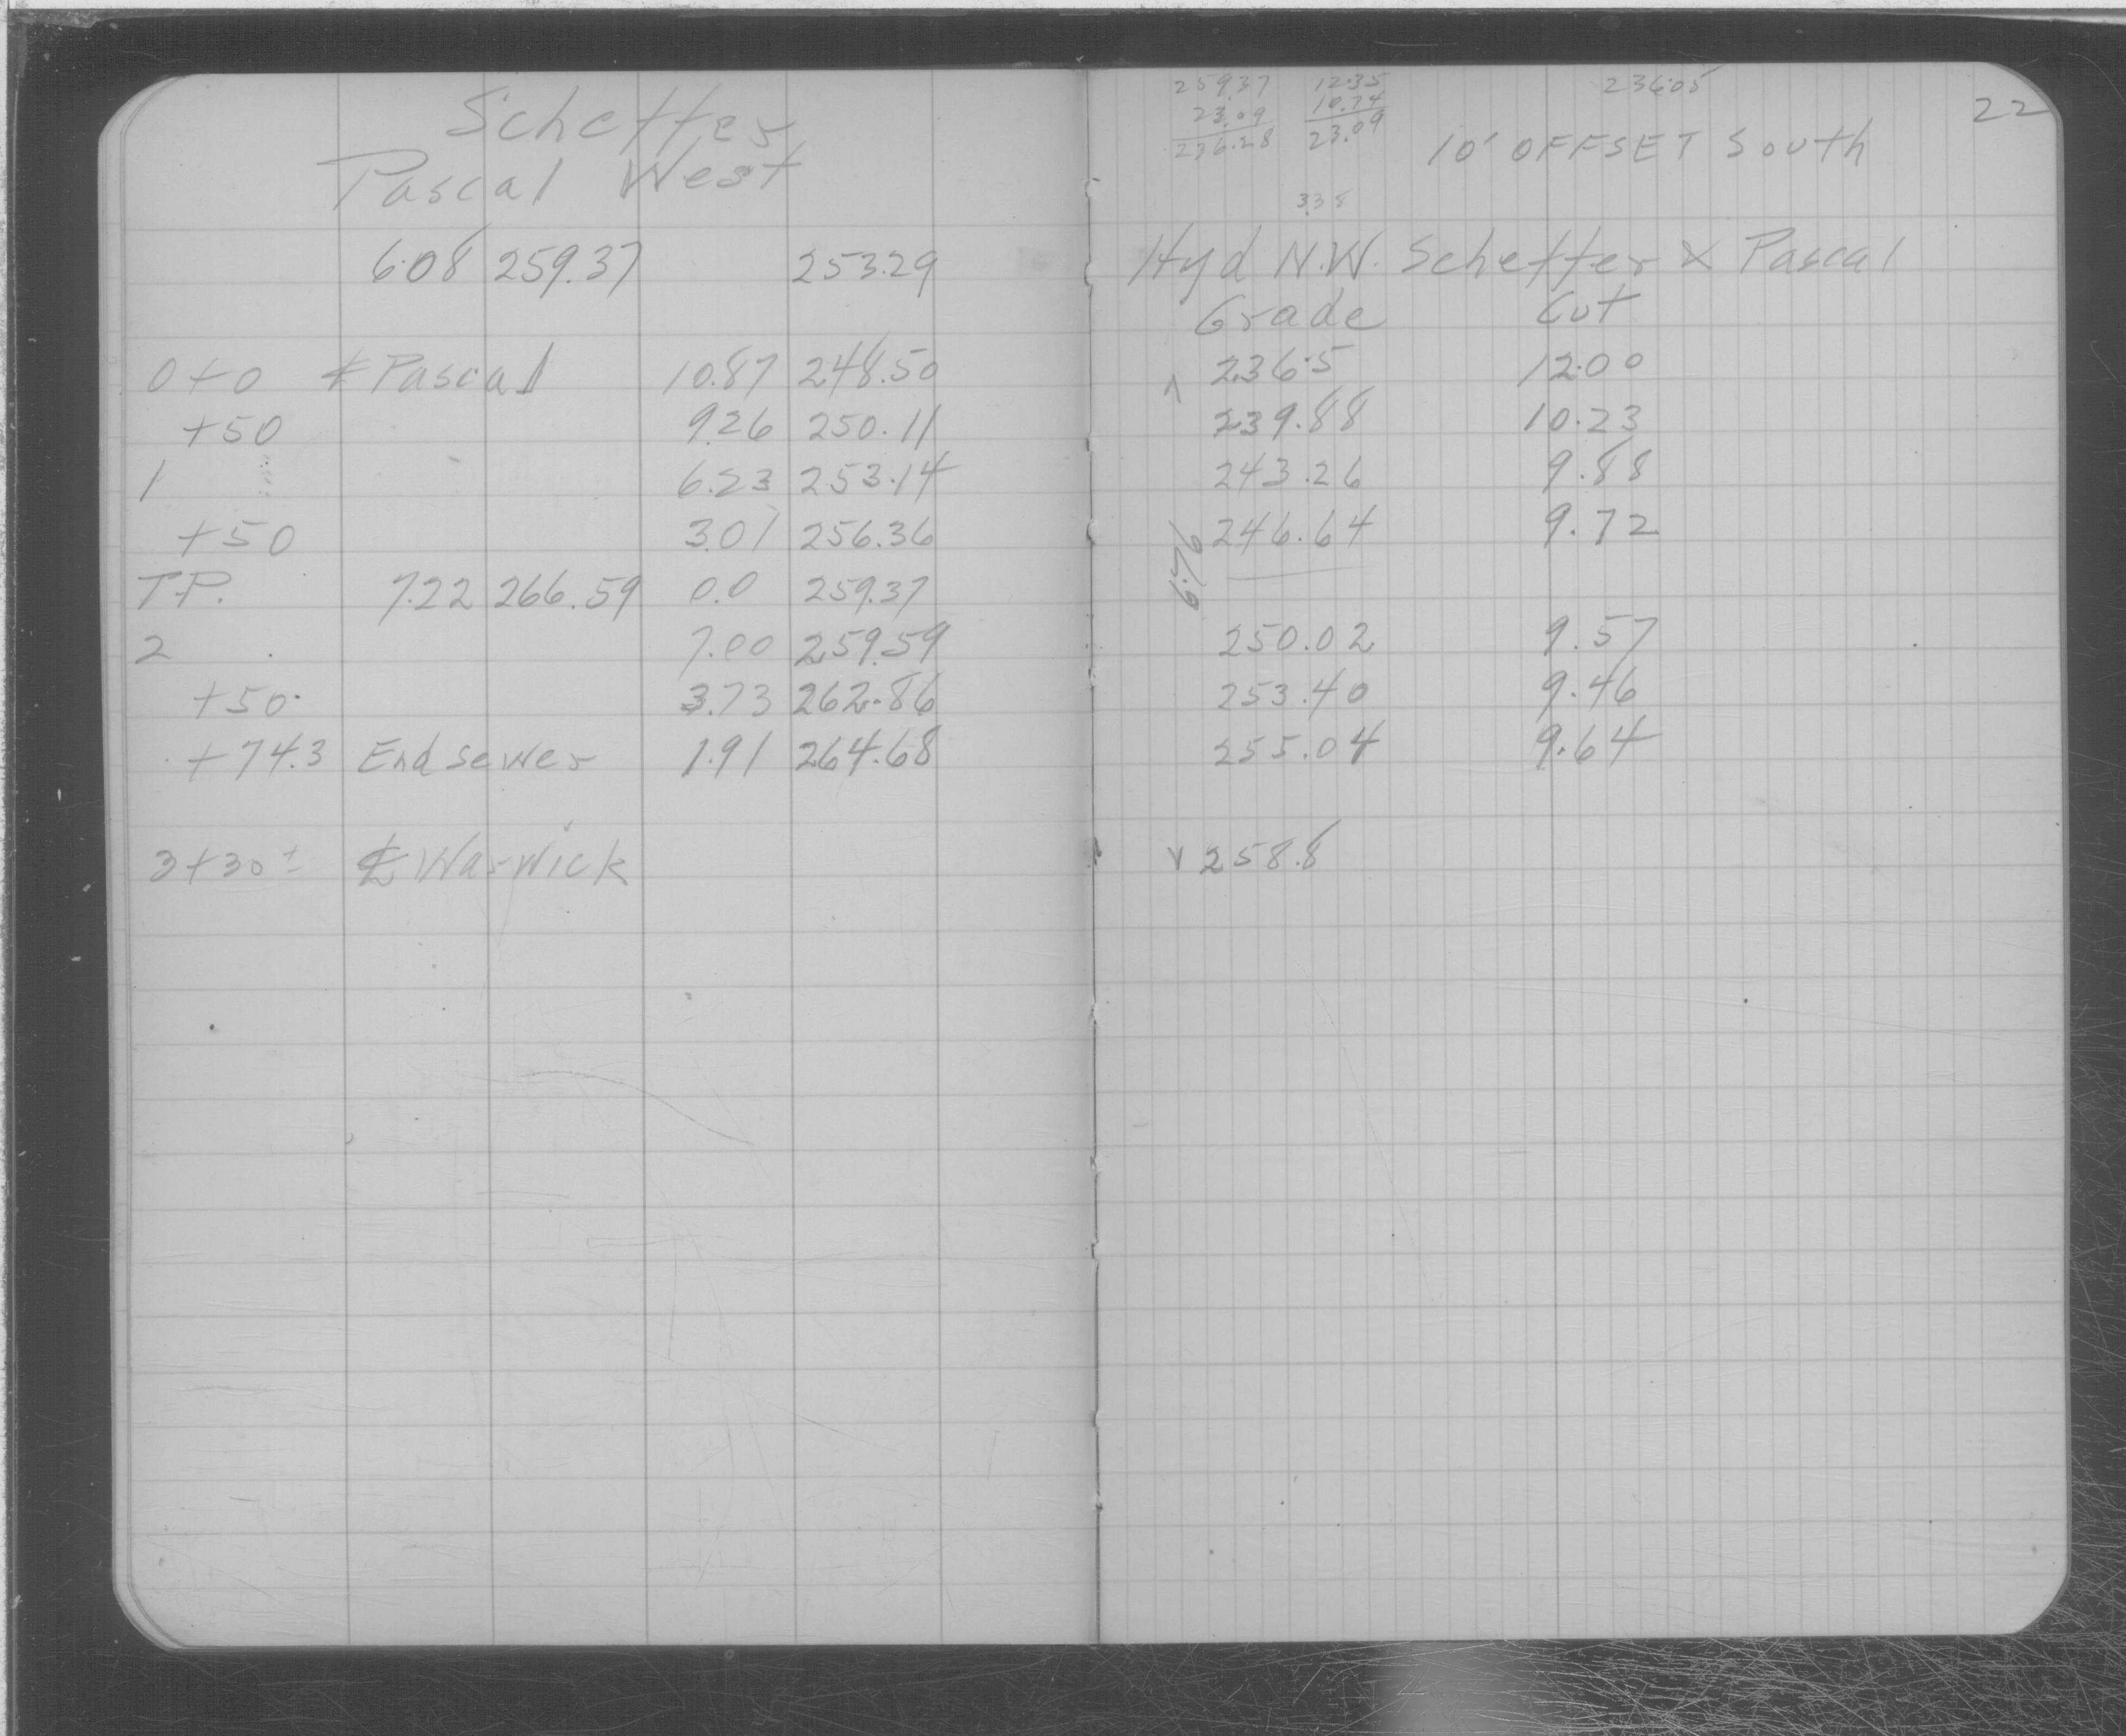 Scheffer
Pascal West
6.08 259.37 253.29
0+0 ℄ Pascal 10.87 248.50
+50 9.26 250.11
1 6.23 253.14
+50 3.01 256.36
T.P. 7.22 266.59 0.0 259.37
2 7.00 259.59
+50 3.73 262.86
+74.3 End sewer 1.91 264.68
3+30± ℄ Warwick
259.37 12.35 236.05
23.09 10.74
236.28 23.09
22
10' OFFSET South
338
Hyd N.W. Scheffer X Pascal
Grade Cut
236.5 12.00
239.88 10.23
243.26 9.88
246.64 9.72
6.76
250.02 9.57
253.40 9.46
255.04 9.64
258.8